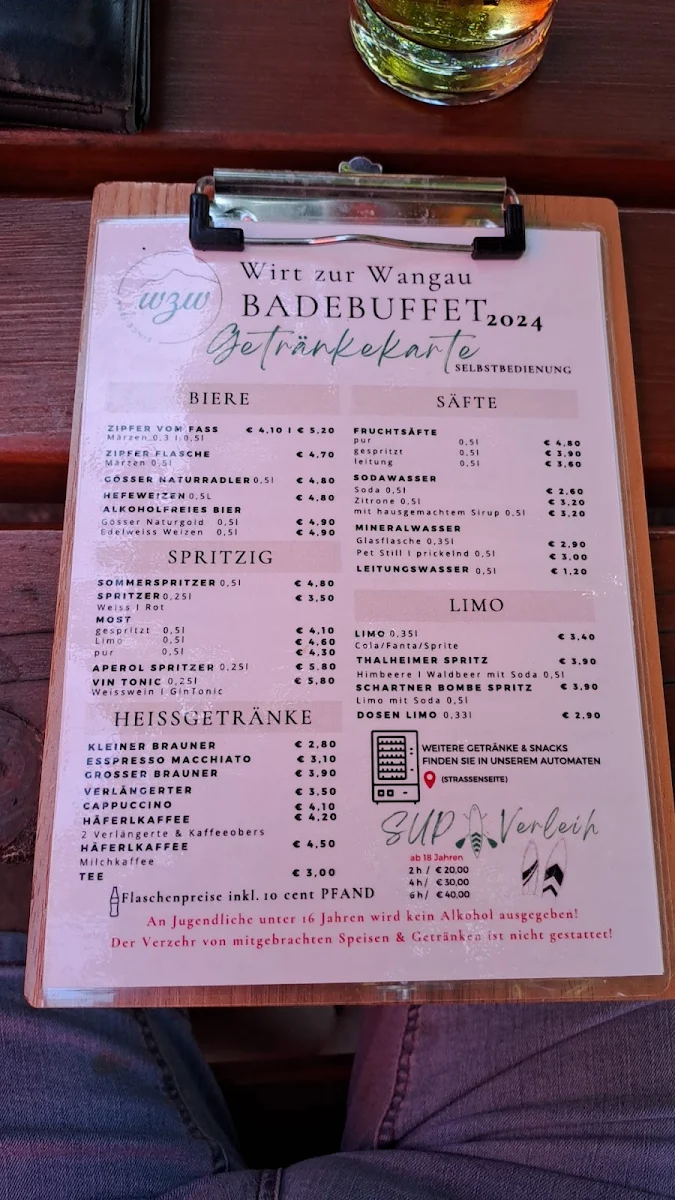 wzw
Wirt zur Wangau
BADEBUFFET 2024
Getränkekarte
SELBSTBEDIENUNG
BIERE
ZIPFER VOM FASS € 4,10 | € 5,20
Märzen 0,3 | 0,5l
ZIPFER FLASCHE € 4,70
Märzen 0,5l
GÖSSER NATURRADLER 0,5l € 4,80
HEFEWEIZEN 0,5L € 4,80
ALKOHOLFREIES BIER
Gösser Naturgold 0,5l € 4,90
Edelweiss Weizen 0,5l € 4,90
SPRITZIG
SOMMERSPRITZER 0,5l € 4,80
SPRITZER 0,25l € 3,50
Weiss | Rot
MOST
gespritzt 0,5l € 4,10
Limo 0,5l € 4,60
pur 0,5l € 4,30
APEROL SPRITZER 0,25l € 5,80
VIN TONIC 0,25l € 5,80
Weisswein | GinTonic
HEISSGETRÄNKE
KLEINER BRAUNER € 2,80
ESSPRESSO MACCHIATO € 3,10
GROSSER BRAUNER € 3,90
VERLÄNGERTER € 3,50
CAPPUCCINO € 4,10
HÄFERLKAFFEE € 4,20
2 Verlängerte & Kaffeeobers
HÄFERLKAFFEE € 4,50
Milchkaffee
TEE € 3,00
SÄFTE
FRUCHTSÄFTE
pur 0,5l € 4,80
gespritzt 0,5l € 3,90
leitung 0,5l € 3,60
SODAWASSER
Soda 0,5l € 2,60
Zitrone 0,5l € 3,20
mit hausgemachtem Sirup 0,5l € 3,20
MINERALWASSER
Glasflasche 0,35l € 2,90
Pet Still | prickelnd 0,5l € 3,00
LEITUNGSWASSER 0,5l € 1,20
LIMO
LIMO 0,35l € 3,40
Cola/Fanta/Sprite
THALHEIMER SPRITZ € 3,90
Himbeere | Waldbeer mit Soda 0,5l
SCHARTNER BOMBE SPRITZ € 3,90
Limo mit Soda 0,5l
DOSEN LIMO 0,33l € 2,90
WEITERE GETRÄNKE & SNACKS
FINDEN SIE IN UNSEREM AUTOMATEN
(STRASSENSEITE)
SUP Verleih
ab 18 Jahren
2h / € 20,00
4h / € 30,00
6h / € 40,00
Flaschenpreise inkl. 10 cent PFAND
An Jugendliche unter 16 Jahren wird kein Alkohol ausgegeben!
Der Verzehr von mitgebrachten Speisen & Getränken ist nicht gestattet!